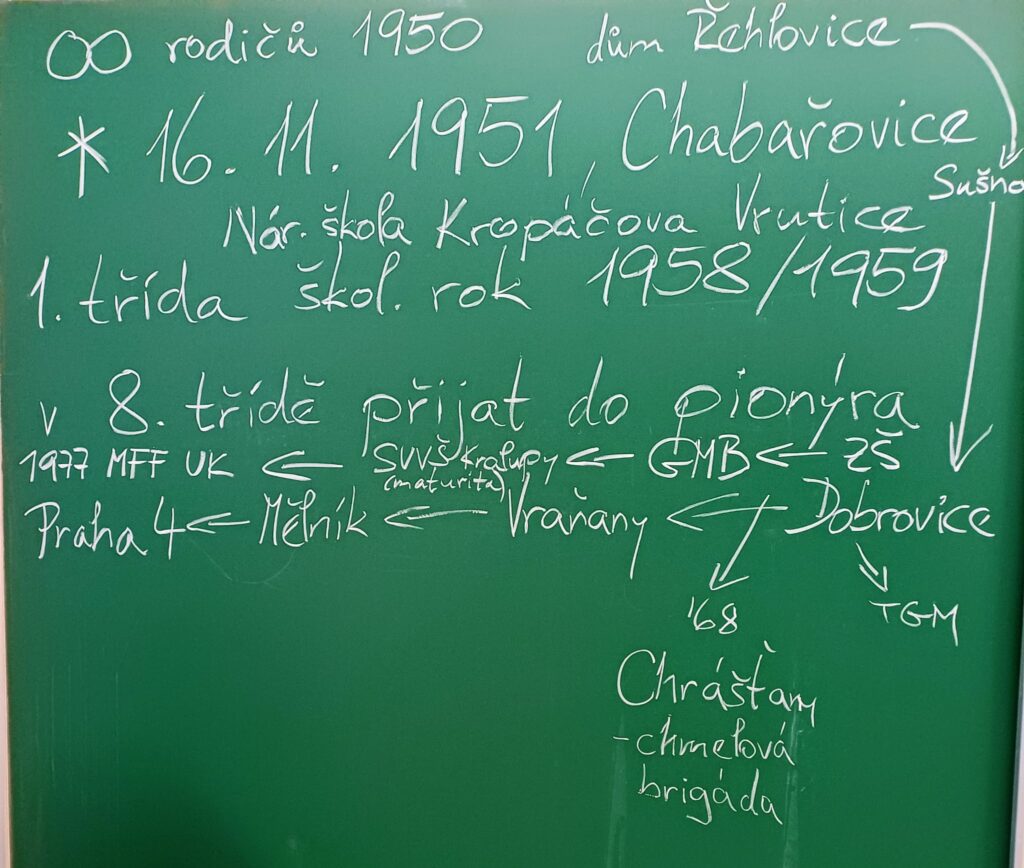 ∞ rodičů 1950 dům Řehlovice
* 16. 11. 1951, Chabařovice
Sušno
Nár. škola Kropáčova Vrutice
1. třída škol. rok 1958/1959
v 8. třídě přijat do pionýra
1977 MFF UK ← SVVŠ Kralupy ← GMB ← ZŠ
(maturita)
Praha 4 ← Mělník ← Vraňany ← Dobrovice
'68 TGM
Chrášťany
- chmelová
brigáda